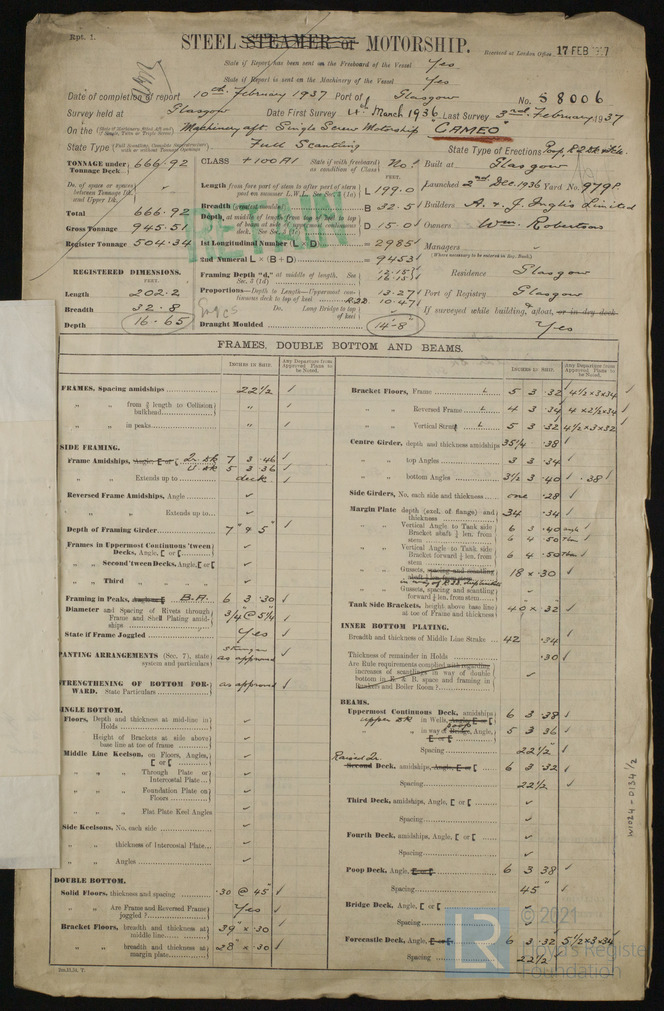 Rpt. 1.
STEEL STEAMER or MOTORSHIP.
Received at London Office 17 FEB
State if Report has been sent on the Freeboard of the Vessel Yes
State if Report is sent on the Machinery of the Vessel Yes
Date of completion of report 10th February 1937 Port of Glasgow No. 58006
Survey held at Glasgow Date First Survey 4th March 1936 Last Survey 3rd February 1937
On the Machinery aft Single Screw Motorship "CAMEO"
State Type Full Scantling State Type of Erections Poop, R.2. Dk
TONNAGE under Tonnage Deck 666.92 CLASS +100A1 State if with freeboard as condition of Class No. Built at Glasgow
Do. of space or spaces between Tonnage Dk. and Upper Dk.
Length from fore part of stem to after part of stern post on summer L.W.L. L 199.0 Launched 2nd Dec. 1936 Yard No. 979P
Total 666.92 Breadth B 32.5 Builders A. & J. Inglis Limited
Gross Tonnage 945.51 Depth, at middle of length D 15.0 Owners Wm. Robertson
Register Tonnage 504.34 1st Longitudinal Number (L × D) = 2985 Managers
2nd Numeral L × (B + D) = 9453 (Where necessary to be entered in Reg. Book.)
REGISTERED DIMENSIONS. FEET. Framing Depth "d," at middle of length. Residence Glasgow
Length 202.2 Proportions—Depth to Length—Uppermost continuous deck to top of keel 13.27 Port of Registry Glasgow
Breadth 32.8 Do. Long Bridge to top of keel 10.47 If surveyed while building, afloat, or in dry dock Yes
Depth 16.65 Draught Moulded 14-8"
RETAIN
FRAMES, DOUBLE BOTTOM AND BEAMS.
INCHES IN SHIP. Any Departure from Approved Plans to be Noted.
FRAMES, Spacing amidships 22½
" " from ⅗ length to Collision bulkhead "
" " in peaks "
SIDE FRAMING.
Frame Amidships, Angle, [ or [ 7 3 .46
5 3 .36
" " Extends up to deck
Reversed Frame Amidships, Angle
" " Extends up to
Depth of Framing Girder 7" 9 5"
Frames in Uppermost Continuous 'tween Decks, Angle, [ or [
" " Second 'tween Decks, Angle, [ or [
" " Third " " " "
Framing in Peaks, Angle or [ B.A. 6 3 .30
Diameter and Spacing of Rivets through Frame and Shell Plating amidships 3/4" @ 5¼
State if Frame Joggled Yes
PANTING ARRANGEMENTS (Sec. 7), state system and particulars as approved
STRENGTHENING OF BOTTOM FORWARD. State Particulars as approved
SINGLE BOTTOM.
Floors, Depth and thickness at mid-line in Holds
Height of Brackets at side above base line at toe of frame
Middle Line Keelson, on Floors, Angles, [ or [
" " Through Plate or Intercostal Plate
" " Foundation Plate on Floors
" " Flat Plate Keel Angles
Side Keelsons, No. each side
" " thickness of Intercostal Plate
" " Angles
DOUBLE BOTTOM.
Solid Floors, thickness and spacing .30 @ 45"
" " Are Frame and Reversed Frame joggled? Yes
Bracket Floors, breadth and thickness at middle line 39" × .30
" " breadth and thickness at margin plate 28" × .30
INCHES IN SHIP. Any Departure from Approved Plans to be Noted.
Bracket Floors, Frame L 5 3 .32 4½×3×34
" " Reversed Frame L 4 3 .34 4×2½×34
" " Vertical Strut L 5 3 .32 4½×3×32
Centre Girder, depth and thickness amidships 35¼ .38
" " top Angles 3 3 .34
" " bottom Angles 3½ 3 .40 .38
Side Girders, No. each side and thickness one .28
Margin Plate depth (excl. of flange) and thickness 34 .34
" " Vertical Angle to Tank side Bracket abaft ¼ len. from stem 6 3 .40
6 4 .50
" " Vertical Angle to Tank side Bracket forward ¼ len. from stem 6 4 .50
" " Gussets, 18 × .30
" " Gussets, spacing and scantling forward ¼ len. from stem
Tank Side Brackets, height above base line at toe of Frame and thickness 40 × .32
INNER BOTTOM PLATING.
Breadth and thickness of Middle Line Strake 42 .34
Thickness of remainder in Holds .30
Are Rule requirements complied with regarding increases of scantlings in way of double bottom in E. & B. space and framing in Bunkers and Boiler Room?
BEAMS.
Uppermost Continuous Deck, amidships 6 3 .38
upper Dk in Wells, Angle, [ or [
" " in way of Bridge, Angle, [ or [ poop 5 3 .36
Spacing 22½"
Raised Qr. Second Deck, amidships, Angle, [ or [ 6 3 .32
Spacing 22½
Third Deck, amidships, Angle, [ or [
Spacing
Fourth Deck, amidships, Angle, [ or [
Spacing
Poop Deck, Angle, [ or [ 6 3 .38
Spacing 45"
Bridge Deck, Angle, [ or [
Spacing
Forecastle Deck, Angle, [ or [ 6 3 .32 5½×3×34
Spacing 22½
W1024-0134 1/2
LR © 2021 Lloyd's Register Foundation